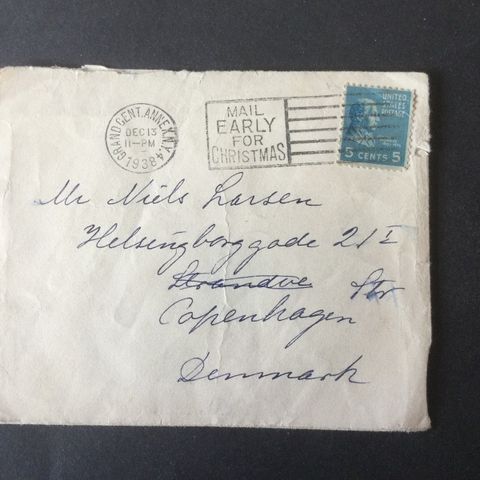 GRAND CENT. ANNEX. N.Y. 4
DEC 13
11-PM
1938
MAIL
EARLY
FOR
CHRISTMAS
UNITED
STATES
POSTAGE
5 CENTS 5
Mr Niels Larsen
Helsingborggade 21 I
Strandve Str
Copenhagen
Denmark